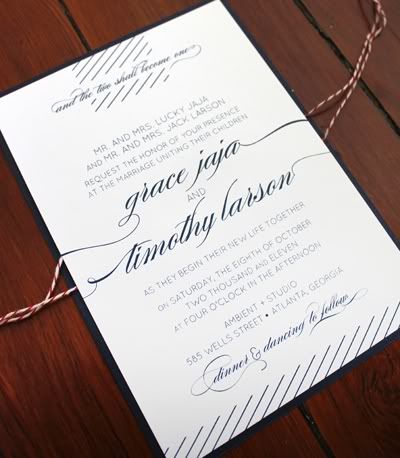 and the two shall become one
MR. AND MRS. LUCKY JAJA
AND MR. AND MRS. JACK LARSON
REQUEST THE HONOR OF YOUR PRESENCE
AT THE MARRIAGE UNITING THEIR CHILDREN
grace jaja
AND
timothy larson
AS THEY BEGIN THEIR NEW LIFE TOGETHER
ON SATURDAY, THE EIGHTH OF OCTOBER
TWO THOUSAND AND ELEVEN
AT FOUR O'CLOCK IN THE AFTERNOON
AMBIENT + STUDIO
585 WELLS STREET • ATLANTA, GEORGIA
dinner & dancing to follow